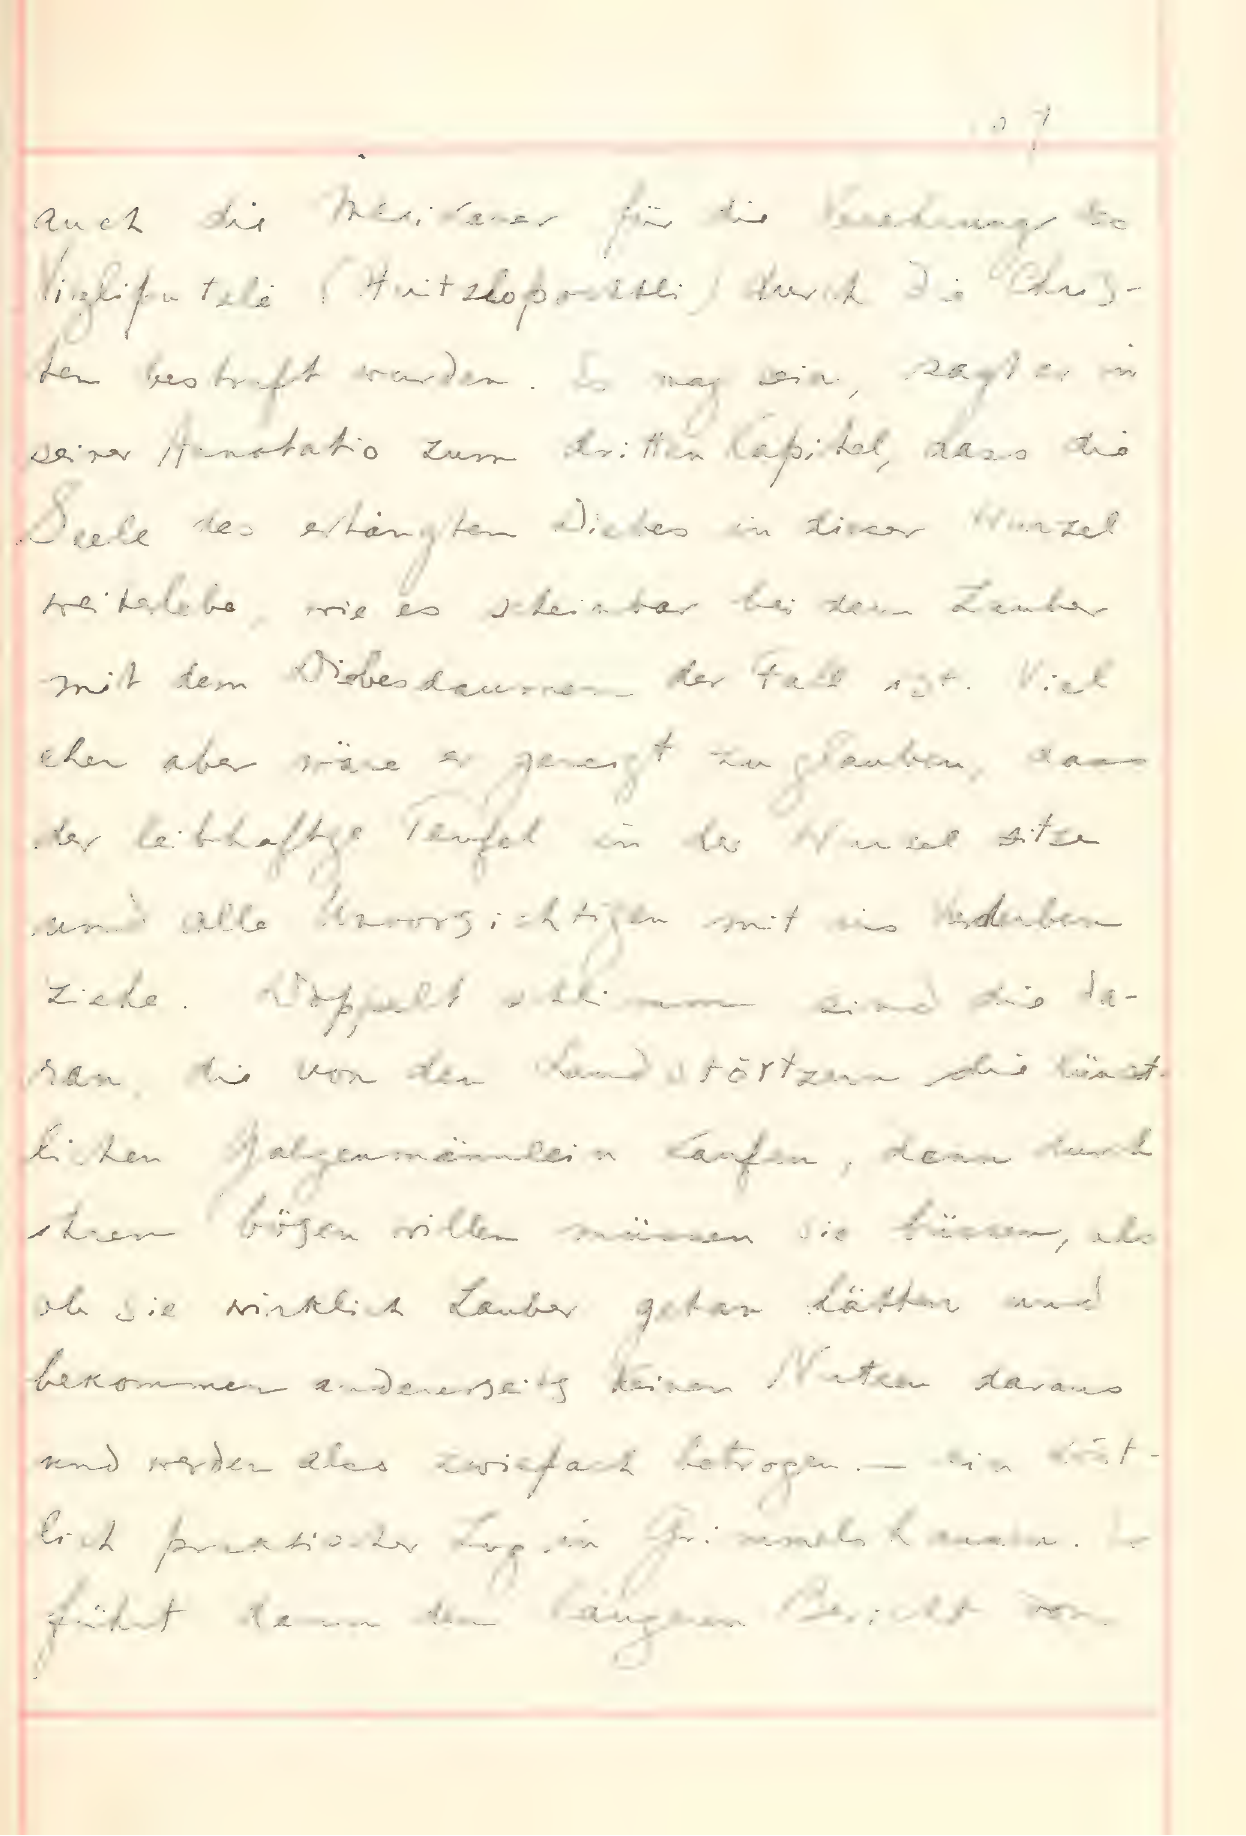 auch die Mexikaner für die Verehrung des
Vizliputzli (Huitzlopochtli) durch die Chris-
ten bestraft wurden. Es mag sein, sagt er in
seiner Annotatio zum dritten Kapitel, dass die
Seele des erhängten Diebes in dieser Wurzel
weiterlebe, wie es scheinbar bei dem Zauber
mit dem Diebesdaumen der Fall ist. Viel
eher aber wäre er geneigt zu glauben, dass
der leibhaftge Teufel in der Wurzel sitze
und alle Unvorsichtigen mit ins Verderben
ziehe. Doppelt schlimm sind die da-
ran, die von den Landstörtzern die künst-
lichen Galgenmännlein kaufen, denn durch
ihren bösen willen müssen sie büssen, als
ob sie wirklich Zauber getan hätten und
bekommen andererseits keinen Nutzen daraus
und werden also zwiefach betrogen. — ein köst-
lich praktischer Zug in Grimmelshausen. Er
führt dann den längeren Bericht von